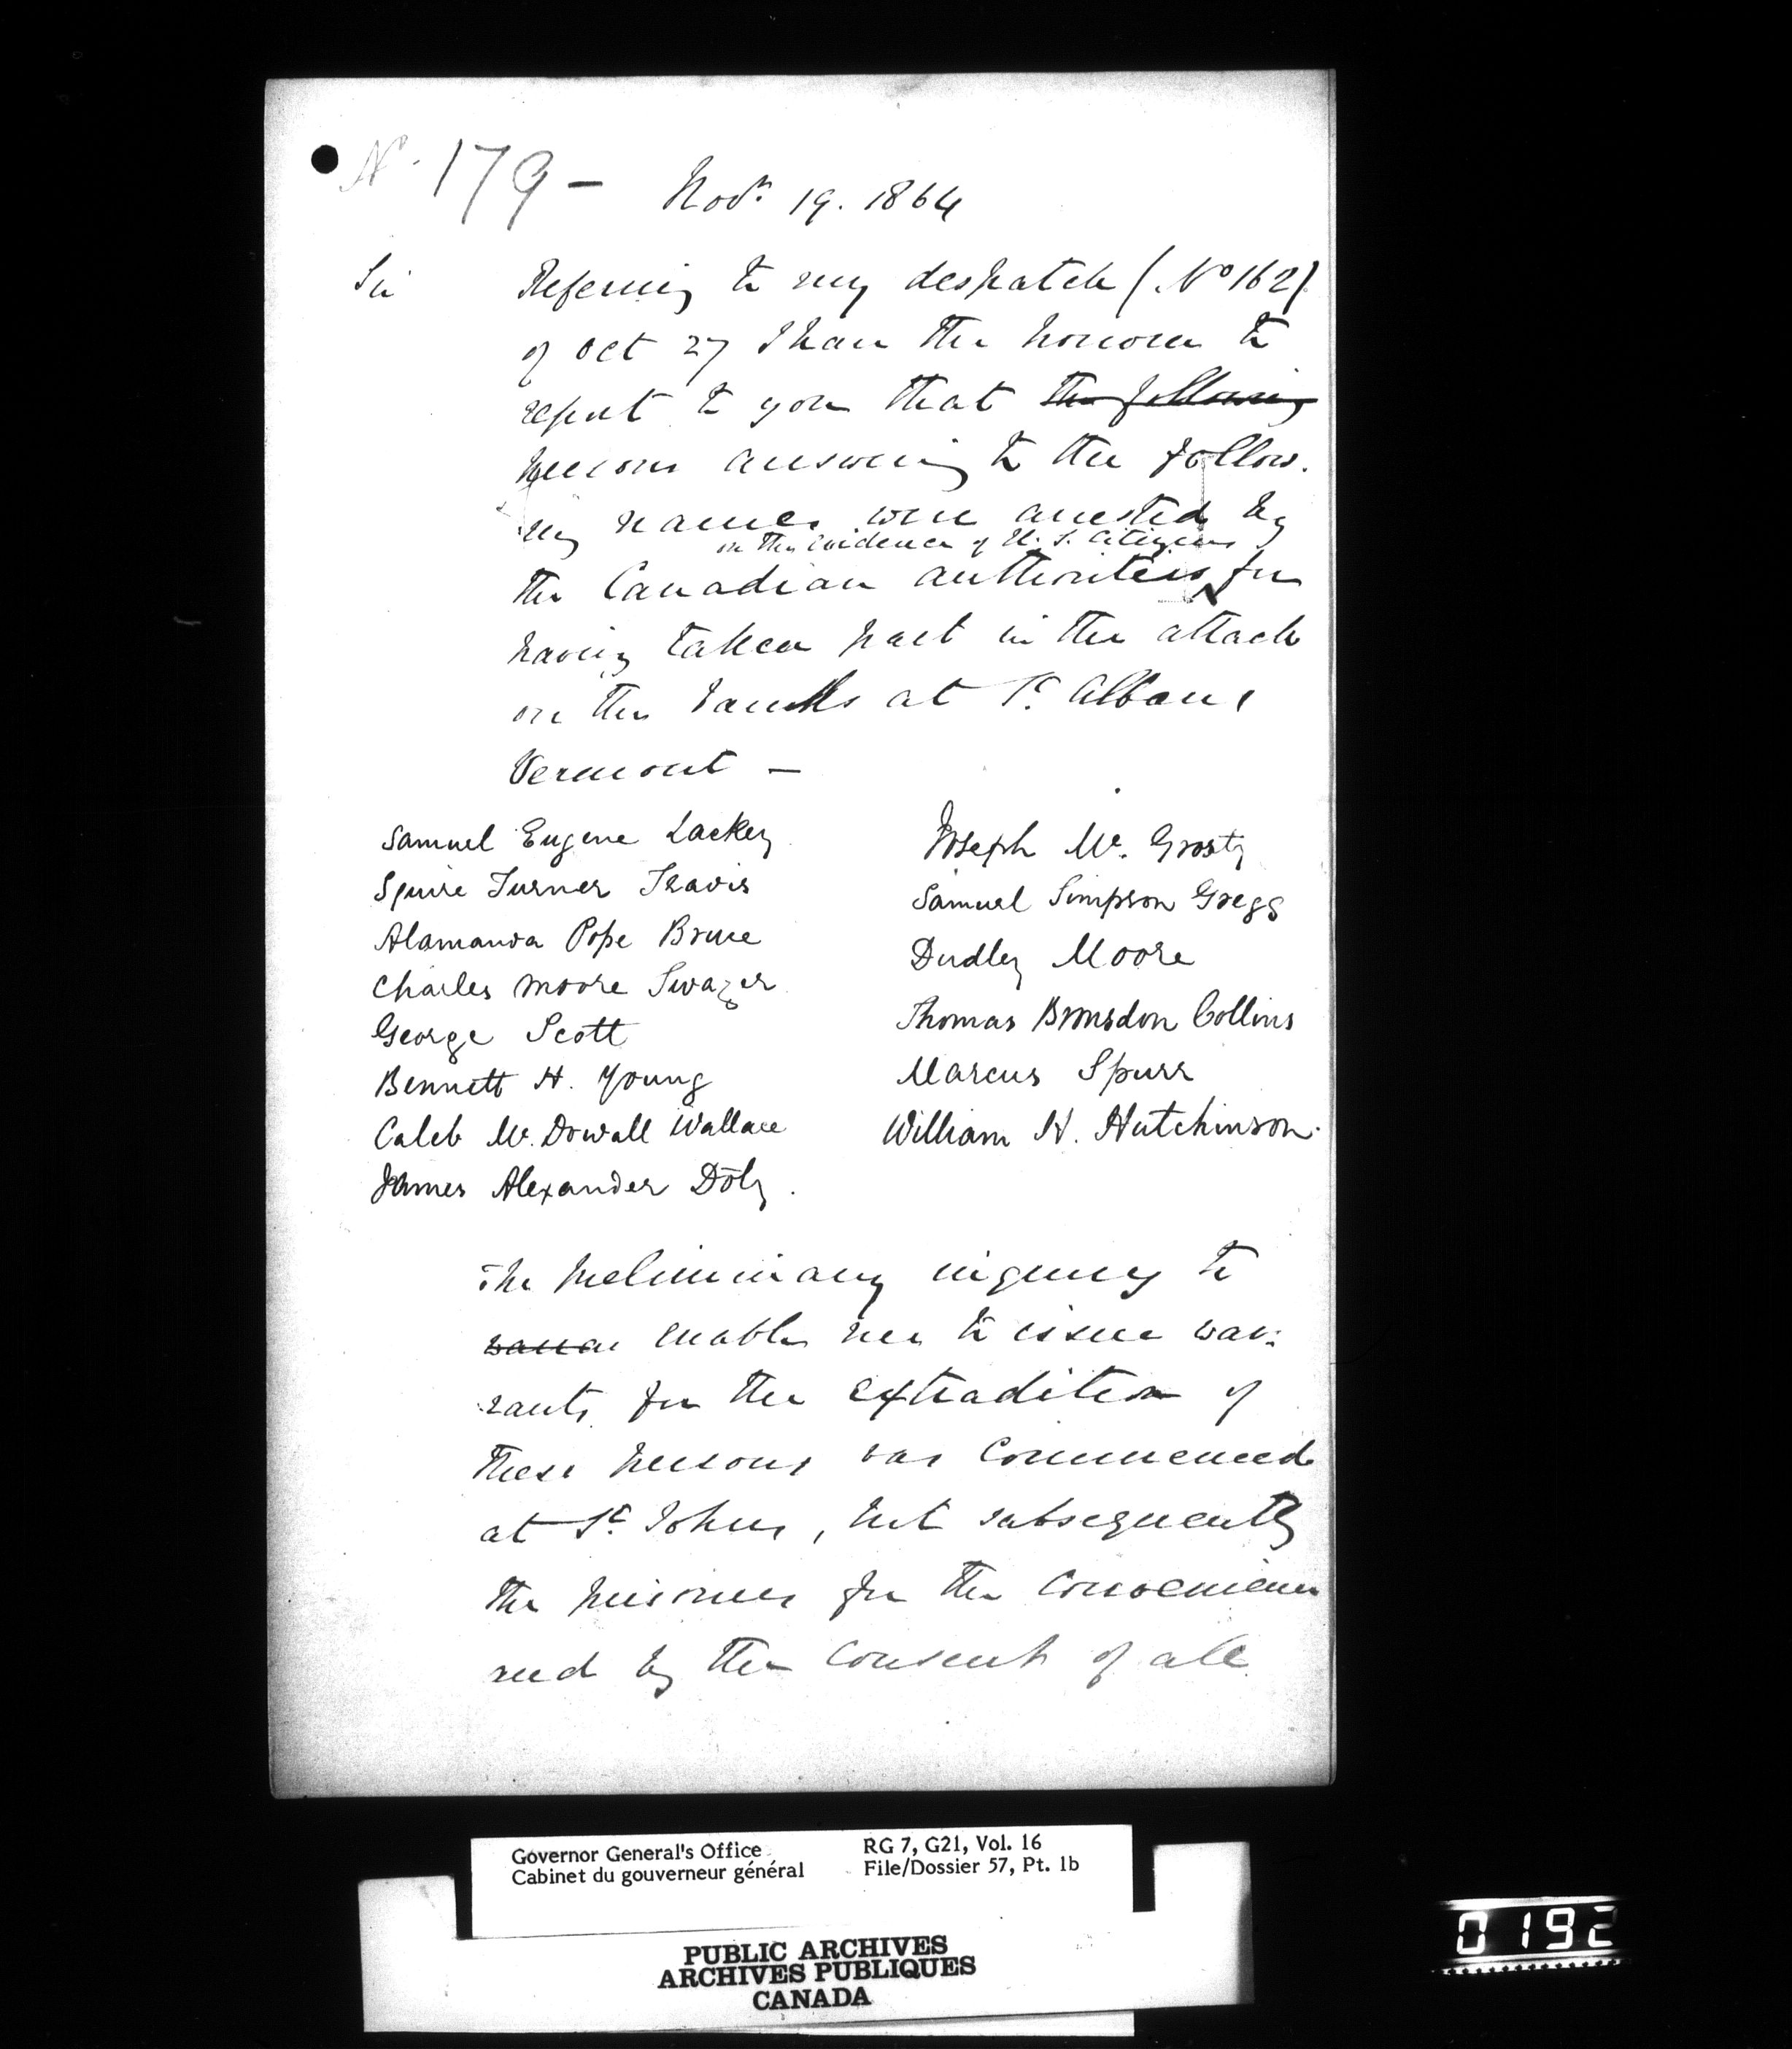 No. 179 -
Novr. 19. 1864
Sir Referring to my despatch (No 162)
of Oct 27 I have the honour to
report to you that the following
persons answering to the follow-
ing names were arrested by
on the evidence of U. S. Citizens
the Canadian authorities for
having taken part in the attack
on the banks at St. Albans
Vermont -
Samuel Eugene Lackey
Squire Turner Travis
Alamanda Pope Bruce
Charles Moore Swazer
George Scott
Bennett H. Young
Caleb Mc. Dowall Wallace
James Alexander Doty.
Joseph Mc. Grosty
Samuel Simpson Gregg
Dudley Moore
Thomas Bronsdon Collins
Marcus Spurr
William H. Hutchinson.
The preliminary inquiry to
enable me to issue war-
rants for the extradition of
these persons was commenced
at St. Johns, but subsequently
the prisoners for the convenience
and by the consent of all
Governor General's Office
Cabinet du gouverneur général
RG 7, G21, Vol. 16
File/Dossier 57, Pt. 1b
PUBLIC ARCHIVES
ARCHIVES PUBLIQUES
CANADA
0192